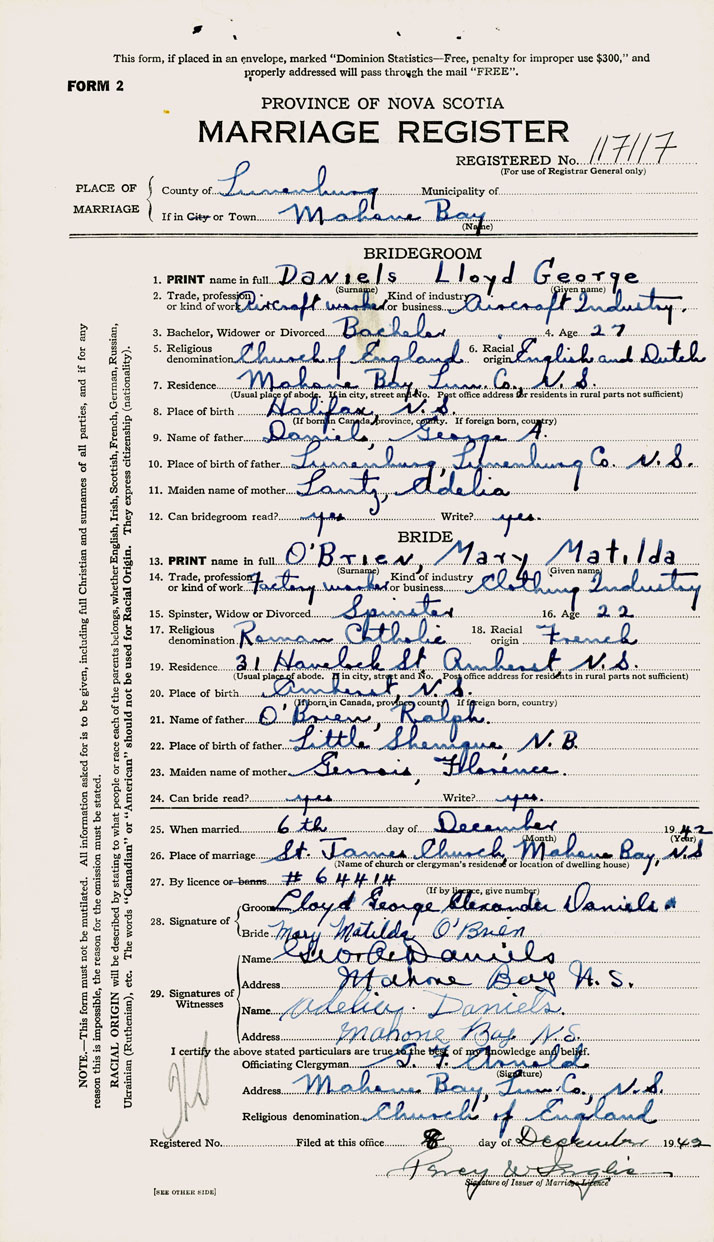 This form, if placed in an envelope, marked "Dominion Statistics—Free, penalty for improper use $300," and
properly addressed will pass through the mail "FREE".
FORM 2
PROVINCE OF NOVA SCOTIA
MARRIAGE REGISTER
REGISTERED No. 117117
(For use of Registrar General only)
PLACE OF MARRIAGE
County of Lunenburg Municipality of
If in City or Town Mahone Bay
(Name)
BRIDEGROOM
1. PRINT name in full Daniels Lloyd George
(Surname) (Given name)
2. Trade, profession or kind of work Aircraft worker Kind of industry or business Aircraft Industry.
3. Bachelor, Widower or Divorced Bachelor 4. Age 27
5. Religious denomination Church of England 6. Racial origin English and Dutch
7. Residence Mahone Bay, Lun. Co., N.S.
(Usual place of abode. If in city, street and No. Post office address for residents in rural parts not sufficient)
8. Place of birth Halifax, N.S.
(If born in Canada, province, county. If foreign born, country)
9. Name of father Daniels, George A.
10. Place of birth of father Lunenburg, Lunenburg Co. N.S.
11. Maiden name of mother Lantz, Adelia
12. Can bridegroom read? yes Write? yes.
BRIDE
13. PRINT name in full O'Brien, Mary Matilda
(Surname) (Given name)
14. Trade, profession or kind of work Factory worker Kind of industry or business Clothing Industry
15. Spinster, Widow or Divorced Spinster 16. Age 22
17. Religious denomination Roman Catholic 18. Racial origin French
19. Residence 31 Havelock St Amherst N.S.
(Usual place of abode. If in city, street and No. Post office address for residents in rural parts not sufficient)
20. Place of birth Amherst, N.S.
(If born in Canada, province, county. If foreign born, country)
21. Name of father O'Brien, Ralph.
22. Place of birth of father Little Shemogue, N.B.
23. Maiden name of mother Gervais, Florence.
24. Can bride read? yes Write? yes.
25. When married 6th day of December 1942
(Month) (Year)
26. Place of marriage St. James Church, Mahone Bay, N.S
(Name of church or clergyman's residence or location of dwelling house)
27. By licence or banns # 64414
(If by licence, give number)
28. Signature of
Groom Lloyd George Alexander Daniels
Bride Mary Matilda O'Brien
29. Signatures of Witnesses
Name George Daniels
Address Mahone Bay N.S.
Name Adelia Daniels.
Address Mahone Bay N.S.
I certify the above stated particulars are true to the best of my knowledge and belief.
Officiating Clergyman Arnold
(Signature)
Address Mahone Bay, Lun. Co., N.S.
Religious denomination Church of England
Registered No. Filed at this office 8 day of December 1942
Percy W Inglis
Signature of Issuer of Marriage Licence
[SEE OTHER SIDE]
NOTE.—This form must not be mutilated. All information asked for is to be given, including full Christian and surnames of all parties, and if for any
reason this is impossible, the reason for the omission must be stated.
RACIAL ORIGIN will be described by stating to what people or race each of the parents belongs, whether English, Irish, Scottish, French, German, Russian,
Ukrainian (Ruthenian), etc. The words "Canadian" or "American" should not be used for Racial Origin. They express citizenship (nationality).